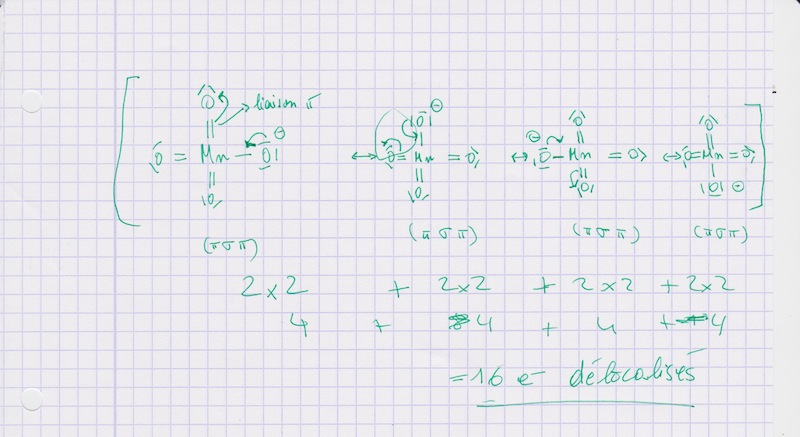 [ O = Mn - O| ⊖ ↔ O = Mn = O ↔ |O - Mn = O ↔ O = Mn = O ]
O O| ⊖ O O
liaison π
|| | || ||
⊖
|| || || |
|O| |O| |O| |O| ⊖
(π σ π) (π σ π) (π σ π) (π σ π)
2×2 + 2×2 + 2×2 + 2×2
4 + 4 + 4 + 4
= 16 e- délocalisés